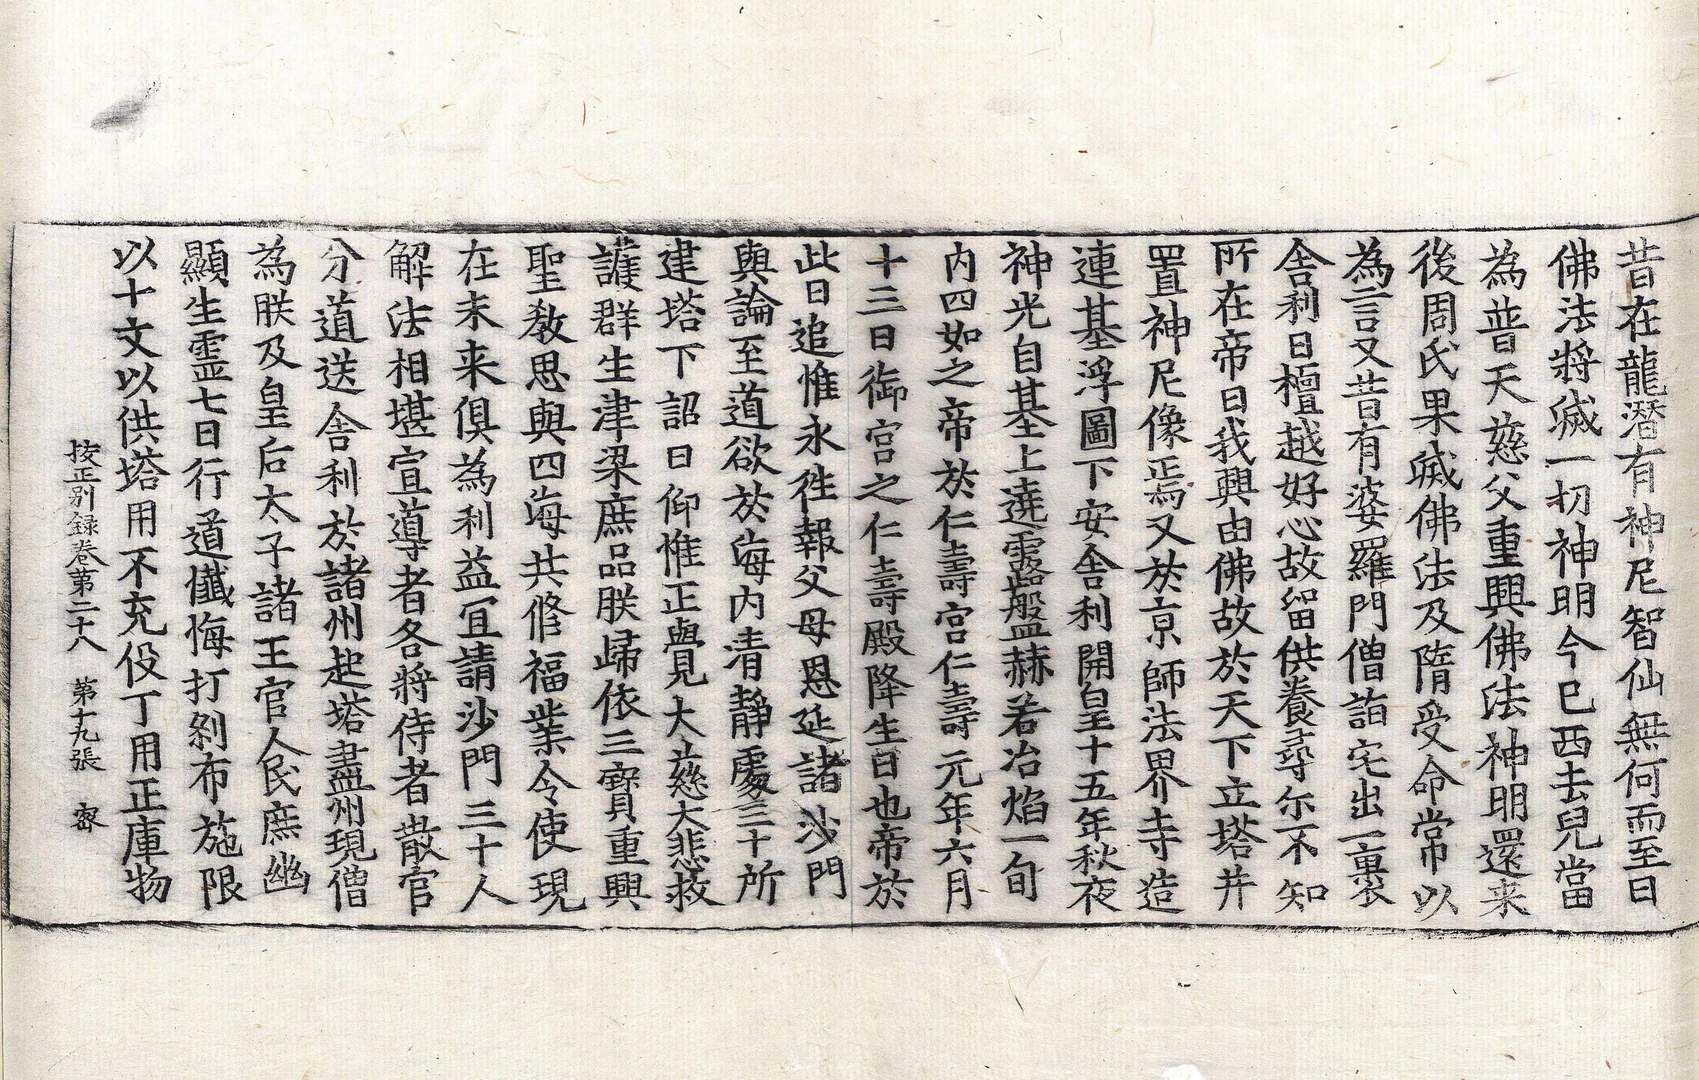 昔在龍潛有神尼智仙無何而至曰
佛法將滅一切神明今已西去兒當
為普天慈父重興佛法神明還来
後周氏果滅佛法及隋受命常以
為言又昔有婆羅門僧詣宅出一裹
舍利曰檀越好心故留供養尋尓不知
所在帝曰我興由佛故於天下立塔幷
置神尼像焉又於京師法界寺造
連基浮圖下安舍利開皇十五年秋夜
神光自基上遶露盤赫若冶焰一旬
内四如之帝於仁壽宮仁壽元年六月
十三日御宮之仁壽殿降生日也帝於
此日追惟永徃報父母恩延諸沙門
與論至道欲於海内清靜處三十所
建塔下詔曰仰惟正覺大慈大悲救
護群生津梁庶品朕歸依三寶重興
聖教思與四海共修福業令使現
在未来俱為利益冝請沙門三十人
解法相堪宣導者各將侍者散官
分道送舍利於諸州起塔盡州現僧
為朕及皇后太子諸王官人民庶幽
顯生靈七日行道懺悔打剎布施限
以十文以供塔用不充役丁用正庫物
按正別録卷苐二十八 苐十九張 密